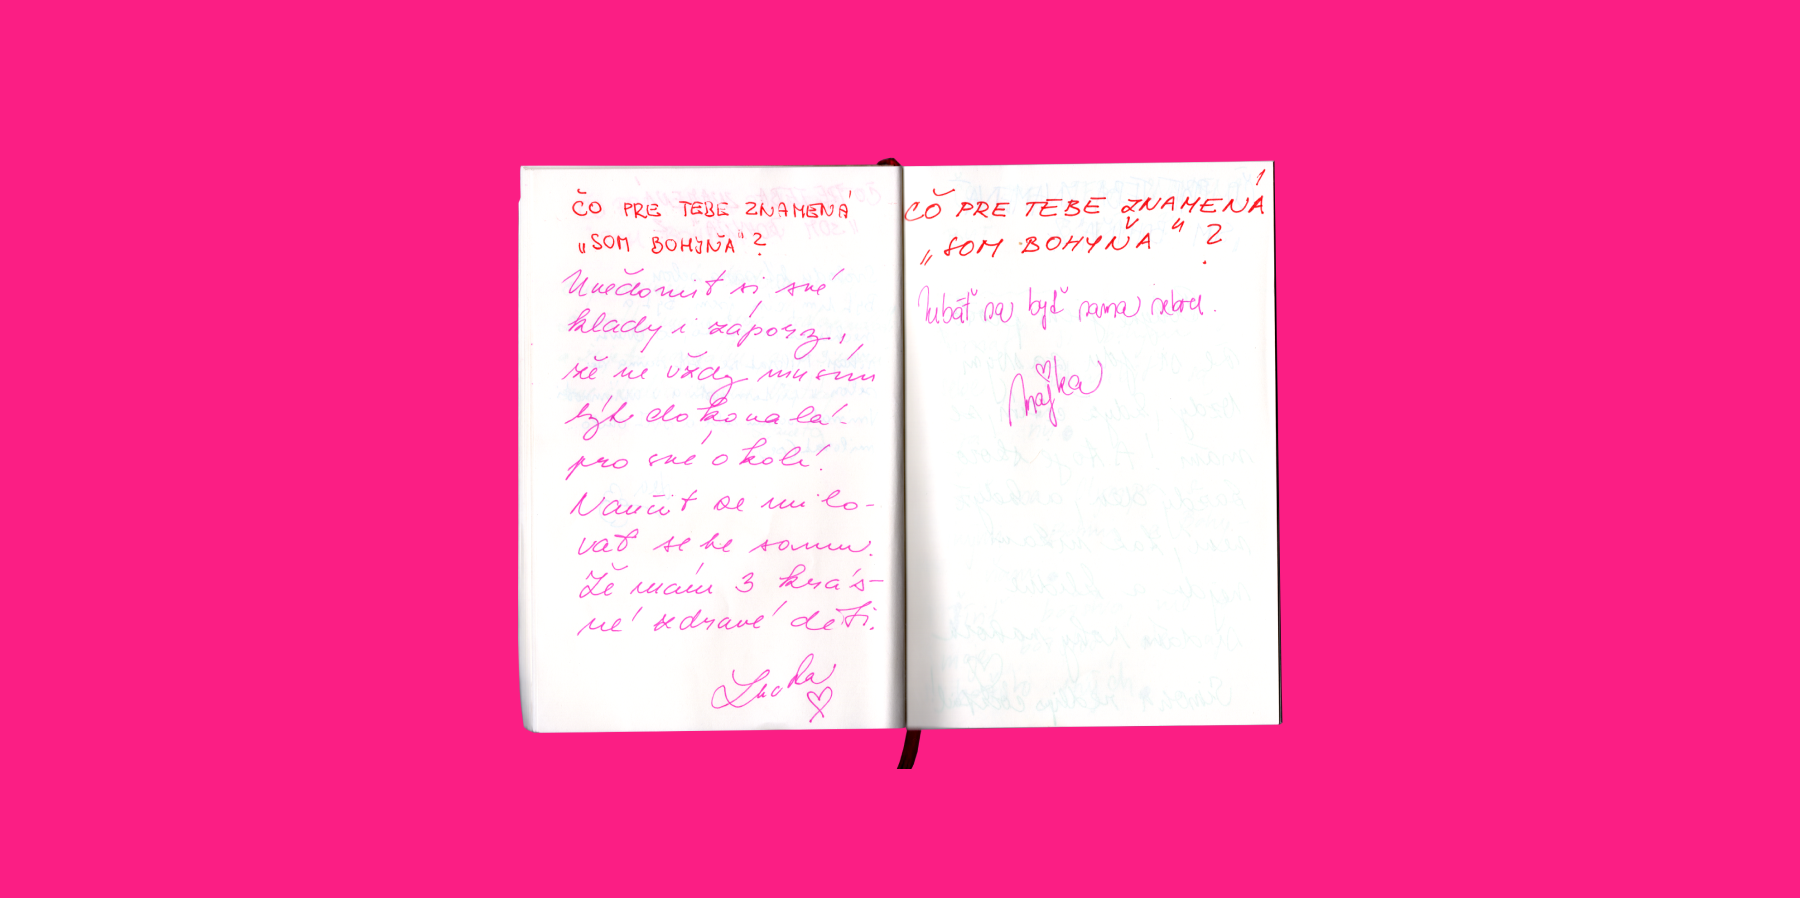 ČO PRE TEBE ZNAMENÁ
„SOM BOHYŇA" ?
Uvědomit si své
klady i zápory,
že ne vždy musím
být dokonalá
pro své okolí.
Naučit se milo-
vat sebe samu.
Že mám 3 krás-
né zdravé děti.
Lucka
ČO PRE TEBE ZNAMENÁ
„SOM BOHYŇA" ?
ľúbáť sa byť sama sebou.
Majka